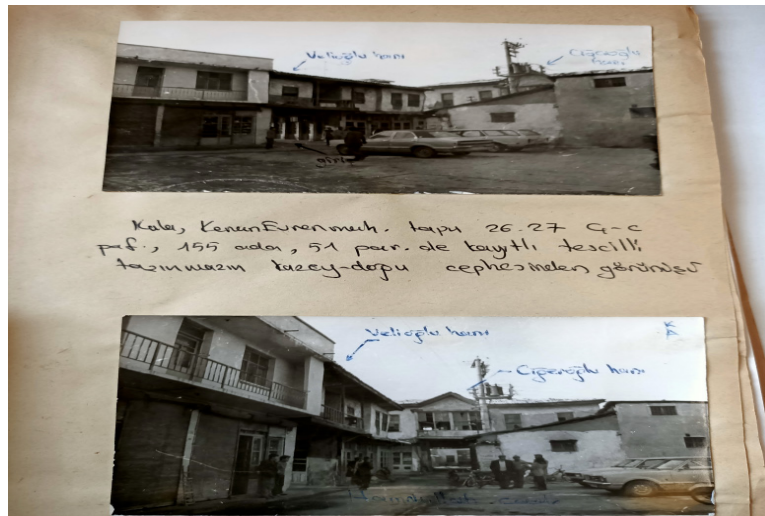 Velioğlu hanı
Ciğeroğlu
hanı
giriş
Kale, Kenan Evren mah. tapu 26.27 G-c
paf., 155 ada, 51 par. ile kayıtlı tescilli
taşınmazın kuzey-doğu cephesinden görünüşü
Velioğlu hanı
Ciğeroğlu hanı